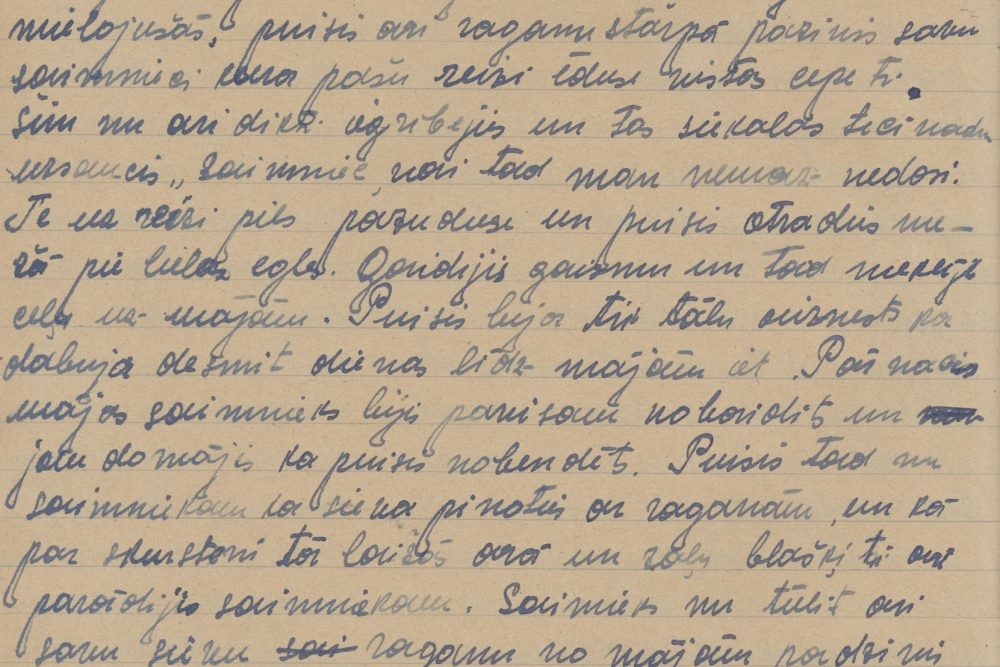 mielojušās, puisis ari raganu stārpā pazinis savu
saimnieci kura pašu reizi ēduse vistas cepeti.
Šim nu ari dikti iegribejies un tas siekalas tecinadu
uzsaucis „saimniec, vai tad man nemaz nedosi.
Te uz reizi pils pazuduse un puisis atradies me-
žā pie lielas egles. Gaidijis gaismu un tad meklejs
ceļu uz mājām. Puisis bija tik tālu aiznests ka
dabuja desmit dienas līdz mājām iet. Pār nacis
mājās saimnieks bijis pavisam nobaidits un
jau domājis ka puisis nobendēts. Puisis tad nu
saimniekam ka sieva pinoties ar raganām, un kā
par skursteni tā laižās ārā un zaļu blašķiti ari
parādijis saimniekam. Saimieks nu tūlit ari
savu sievu sai raganu no mājām padzinis